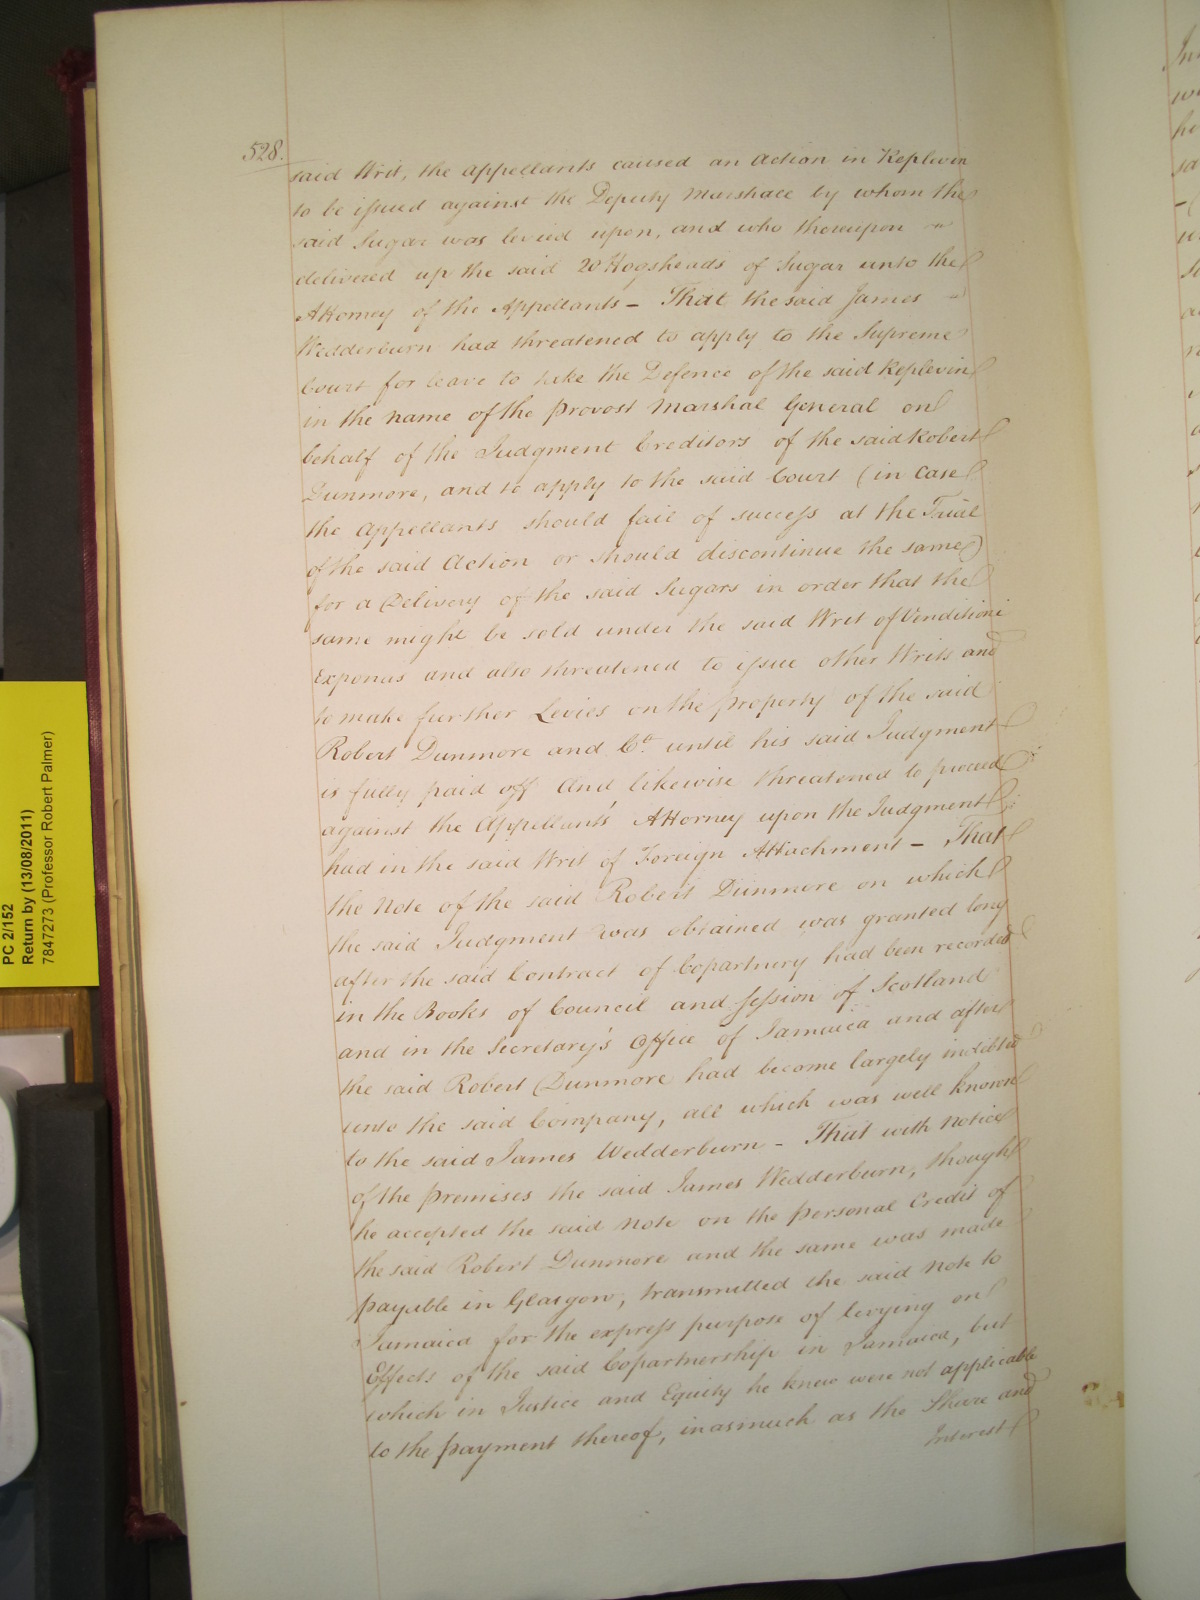 528.
said Writ, the appellants caused an Action in Replevin
to be issued against the Deputy Marshall by whom the
said Sugar was levied upon, and who thereupon
delivered up the said 20 Hogsheads of Sugar unto the
Attorney of the Appellants – That the said James
Wedderburn had threatened to apply to the Supreme
Court for leave to take the Defence of the said Replevin
in the name of the Provost Marshal General on
behalf of the Judgment Creditors of the said Robert
Dunmore, and to apply to the said Court (in Case
the Appellants should fail of success at the Trial
of the said Action or should discontinue the same)
for a Delivery of the said Sugars in order that the
same might be sold under the said Writ of Venditioni
Exponas and also threatened to issue other Writs and
to make further Levies on the property of the said
Robert Dunmore and Co. until his said Judgment
is fully paid off And likewise threatened to proceed
against the Appellants' Attorney upon the Judgment
had in the said Writ of Foreign Attachment – That
the Note of the said Robert Dunmore on which
the said Judgment was obtained was granted long
after the said Contract of Copartnery had been recorded
in the Books of Council and Session of Scotland
and in the Secretary's Office of Jamaica and after
the said Robert Dunmore had become largely indebted
unto the said Company, all which was well known
to the said James Wedderburn – That with Notice
of the premises the said James Wedderburn, though
he accepted the said Note on the personal Credit of
the said Robert Dunmore and the same was made
payable in Glasgow, transmitted the said Note to
Jamaica for the express purpose of levying on
Effects of the said Copartnership in Jamaica, but
which in Justice and Equity he knew were not applicable
to the payment thereof, inasmuch as the Share and
Interest
PC 2/152
Return by (13/08/2011)
7847273 (Professor Robert Palmer)